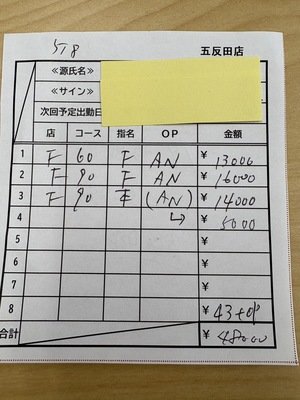 5/8 五反田店
≪源氏名≫
≪サイン≫
次回予定出勤日
店 コース 指名 OP 金額
1 F 60 F AN ¥13000
2 F 90 F AN ¥16000
3 F 90 (AN) ¥14000
4 ↳ ¥5000
5 ¥
6 ¥
7 ¥
8 ¥43+op
合計 ¥48000